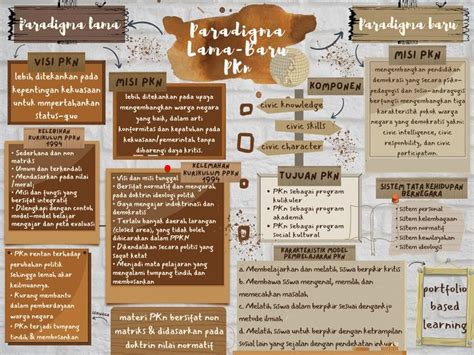 Paradigma lama
Paradigma
Lama-Baru
PKn
Paradigma baru
VISI PKn
lebih ditekankan pada
kepentingan kekuasaan
untuk mmpertahankan
status-quo
KELEBIHAN
KURIKULUM PPKN
1994
• Sederhana dan non
matriks
• Umum dan terkendali
• Mendasarkan pada nilai
(moral)
• Misi dan fungsi yang
bersifat integratif
• Dilengkapi dengan contoh
model-model belajar
mengajar dan peta evaluasi
• PKn rentan terhadap
perubahan politik
shingga lemah, akar
keilmuannya.
• Kurang membantu
dalam pemberdayaan
warga negara
• PKn terjadi tumpang
tindih, & membosankan
MISI PKn
lebih ditekankan pada upaya
mengembangkan warga negara
yang baik, dalam arti
konformitas dan kepatuhan pada
kekuasaan/pemerintah, tanpa
dibarengi daya kritis.
KELEMAHAN
KURIKULUM PPKN
1994
• Visi dan misi tunggal
• Bersifat normatif dan mengarah
pada doktrin ideologi politik
dan ideologi ekonomi
(developmentalis)
• Terlalu banyak daerah larangan
(closed area), yang tidak boleh
dibicarakan dalam PPKN
• Dikendalikan secara politis yang
sagat ketat
• Menjadi mata pelajaran yang
mengalami tumpang tindih, dan
membosankan
materi PKn bersifat non
matriks & didasarkan pada
doktrin nilai normatif
KOMPONEN
civic knowledge
civic skills
civic character
TUJUAN PKN
• PKn sebagai program
kulikuler
• PKn sebagai program
akademik
• PKn sebagai program
social kultural
KARAKTERISTIK MODEL
PEMBELAJARAN PKN
a. Membelajarkan dan melatih siswa berpikir kritis
b. Membawa siswa mengenal, memilih, dan
memecahkan masalah.
c. Melatih siswa dalam berpikir sesuai dengan
metode ilmiah.
d. Melatih siswa untuk berpikir dengan ketrampilan
sosial lain yang sejalan dengan pendekatan inkuiri
MISI PKN
mengembangkan pendidikan
demokrasi yang secara psiko-
pedagogis dan sosio-andragogis
berfungsi mengembangkan tiga
karakteristik pokok warga
negara yang demokratis yakni:
civic intelligence, civic
responsibility, dan civic
participation.
SISTEM TATA KEHIDUPAN
BERNEGARA
• Sistem personal
• Sistem kelembagaan
• sistem normatif
• sistem kewilayahan
• Sistem ideologis
portfolio
based
learning